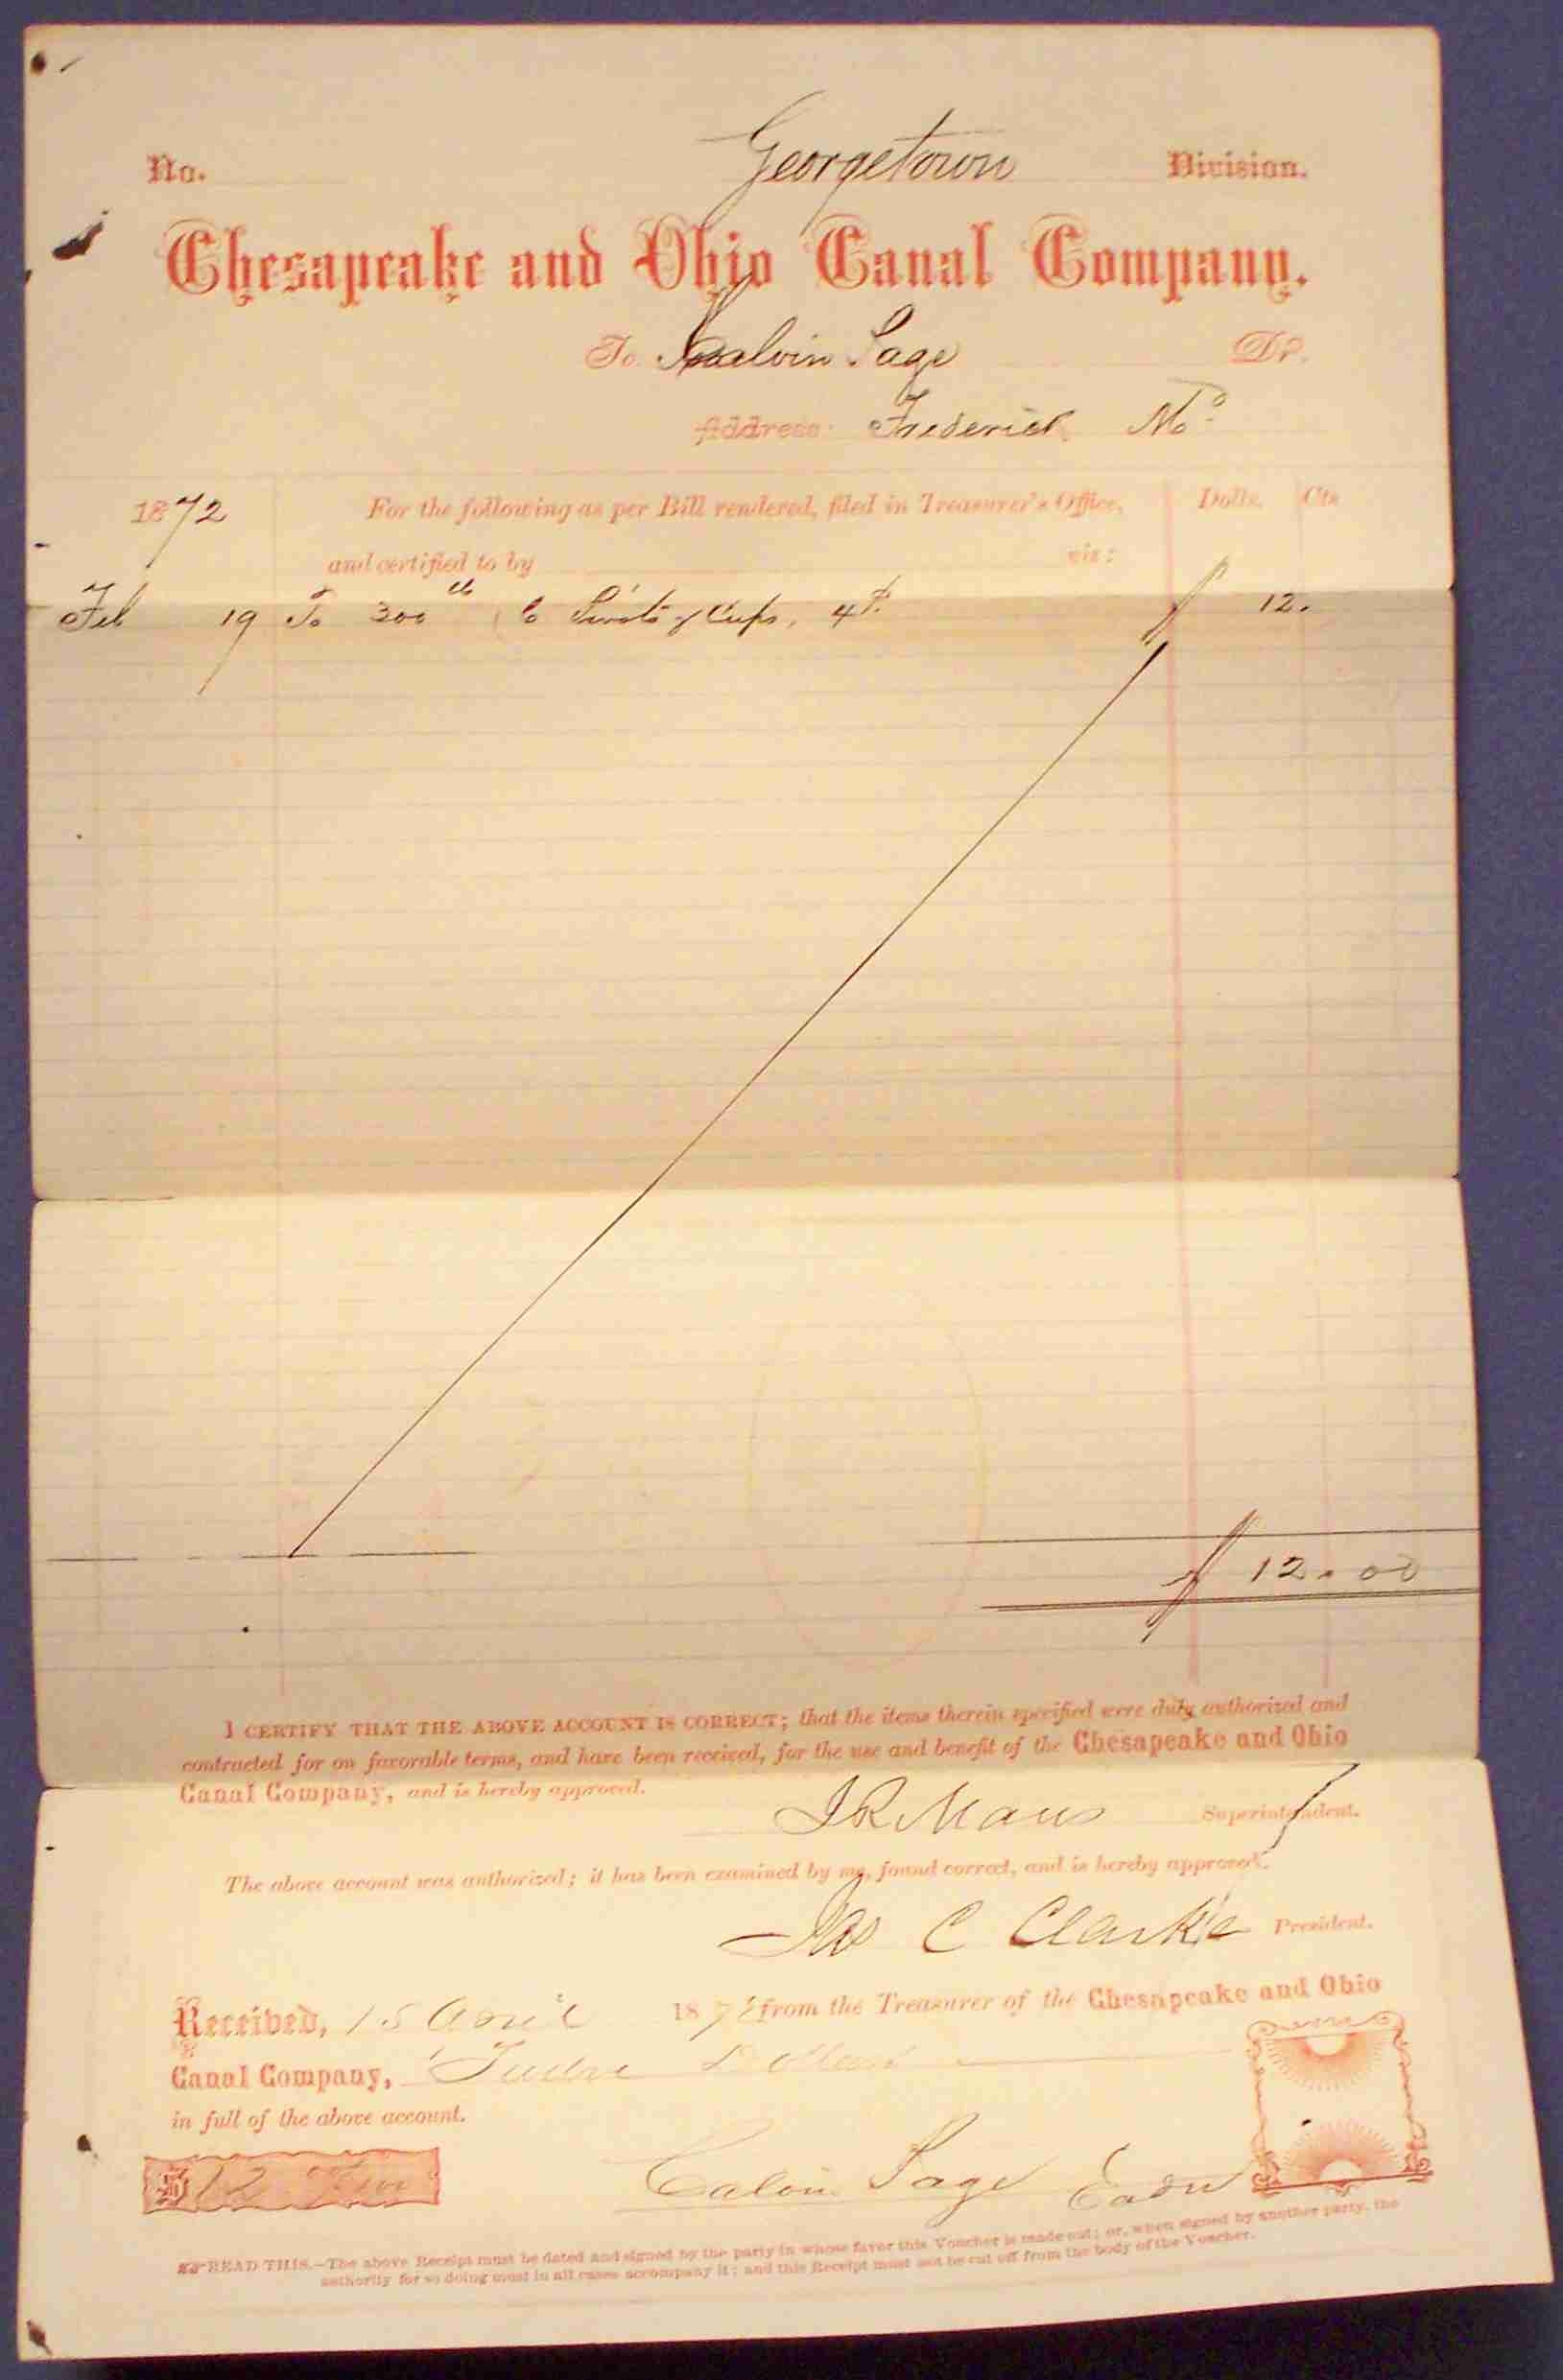 No. Georgetown Division.
Chesapeake and Ohio Canal Company.
To Calvin Page Dr.
Address: Frederick Md
1872 For the following as per Bill rendered, filed in Treasurer's Office, Dolls. Cts
and certified to by viz:
Feb 19 To 300 lb Pivots & Cups, 4¢ $ 12.
$ 12.00
I CERTIFY THAT THE ABOVE ACCOUNT IS CORRECT; that the items therein specified were duly authorized and
contracted for on favorable terms, and have been received, for the use and benefit of the Chesapeake and Ohio
Canal Company, and is hereby approved.
Superintendent.
The above account was authorized; it has been examined by me, found correct, and is hereby approved.
Jas C Clarke President.
Received, 15 April 187 from the Treasurer of the Chesapeake and Ohio
Canal Company, Twelve Dollars
in full of the above account.
$ 12
Calvin Page
READ THIS.—The above Receipt must be dated and signed by the party in whose favor this Voucher is made out; or, when signed by another party, the
authority for so doing must in all cases accompany it; and this Receipt must not be cut off from the body of the Voucher.